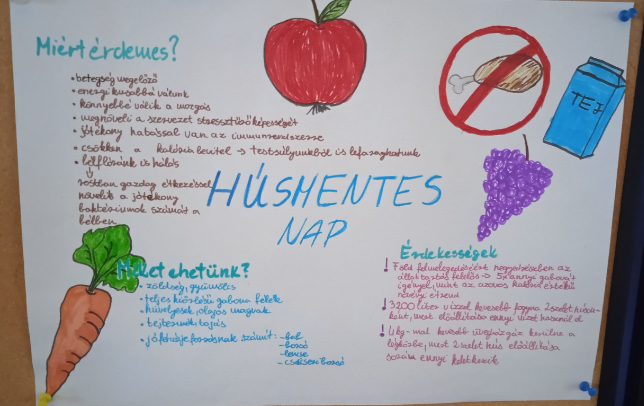 Miért érdemes?
• betegség megelőző
• energikusabbá válunk
• könnyebbé válik a mozgás
• megnöveli a szervezet stressztűrő képességét
• jótékony hatással van az immunrendszerre
• csökken a kalóriabevitel → testsúlyunkból is lefaraghatunk
• bélflóránk is hálás
rostban gazdag étkezéssel
növelik a jótékony
baktériumok számát a
bélben
TEJ
HÚSMENTES
NAP
Miket ehetünk?
• zöldség, gyümölcs
• teljes kiőrlésű gabona félék
• hüvelyesek, olajos magvak
• tejtermék, tojás
• jó fehérjeforrásnak számít: - bab
- borsó
- lencse
- csicseriborsó
Érdekességek
! Föld felmelegedéséért negyedrészben az
állattartás felelős → 5x annyi gabonát
igényel, mint az azonos kalóriaértékű
növényi étrend
! 3200 liter vízzel kevesebb fogyna 2 szelet húson-
ként, mert előállítása ennyi vizet használ el
! kg-mal kevesebb üvegházgáz kerülne a
légkörbe, mert 2 szelet hús előállítása
során ennyi keletkezik